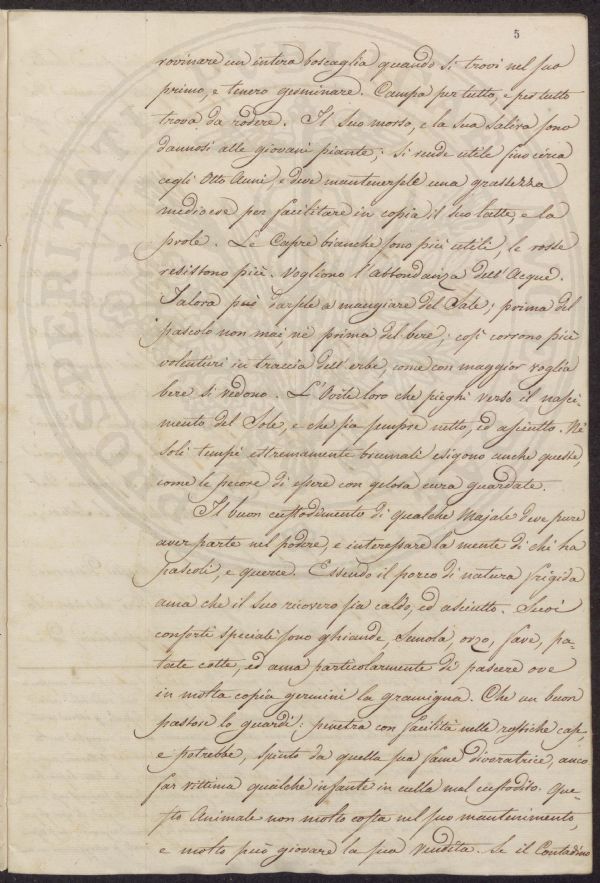 5
rovinare un intera boscaglia quando si trovi nel suo
primo, e tenero germinare. Campa per tutto, e per tutto
trova da rodere. Il suo morso, e la sua saliva sono
dannosi alle giovani piante; si rende utile sino circa
cogli Otto Anni, e deve mantenersele una grassezza
mediocre per facilitare in copia il suo latte, e la
prole. Le Capre bianche sono più utili, le rosse
resistono più. Vogliono l'abbondanza dell'Acque.
Talora può darsele a mangiare del Sale; prima del
pascolo non mai nè prima del bere; così corrono più
volentieri in traccia dell'erbe, come con maggior voglia
bere si vedono. L'Ovile loro che pieghi verso il nasci-
mento del Sole, e che sia sempre netto, ed asciutto. Ne'
soli tempi estremamente brumali esigono anche queste,
come le pecore di essere con gelosa cura guardate.
Il buon custodimento di qualche Majale deve pure
aver parte nel podere, e interessare la mente di chi ha
pascoli, e querce. Essendo il porco di natura frigida
ama che il suo ricovero sia caldo, ed asciutto. Suoi
conforti speciali sono ghiande, Semola, orzo, fave, pa-
tate cotte, ed ama particolarmente di pascere ove
in molta copia germini la gramigna. Che un buon
pastore lo guardi: penetra con facilità nelle rossiche case,
e potrebbe, spinto da quella sua fame divoratrice, anco
far vittima qualche infante in culla mal custodito. Que-
sto Animale non molto costa nel suo mantenimento,
e molto può giovare la sua Vendita. Se il Contadino